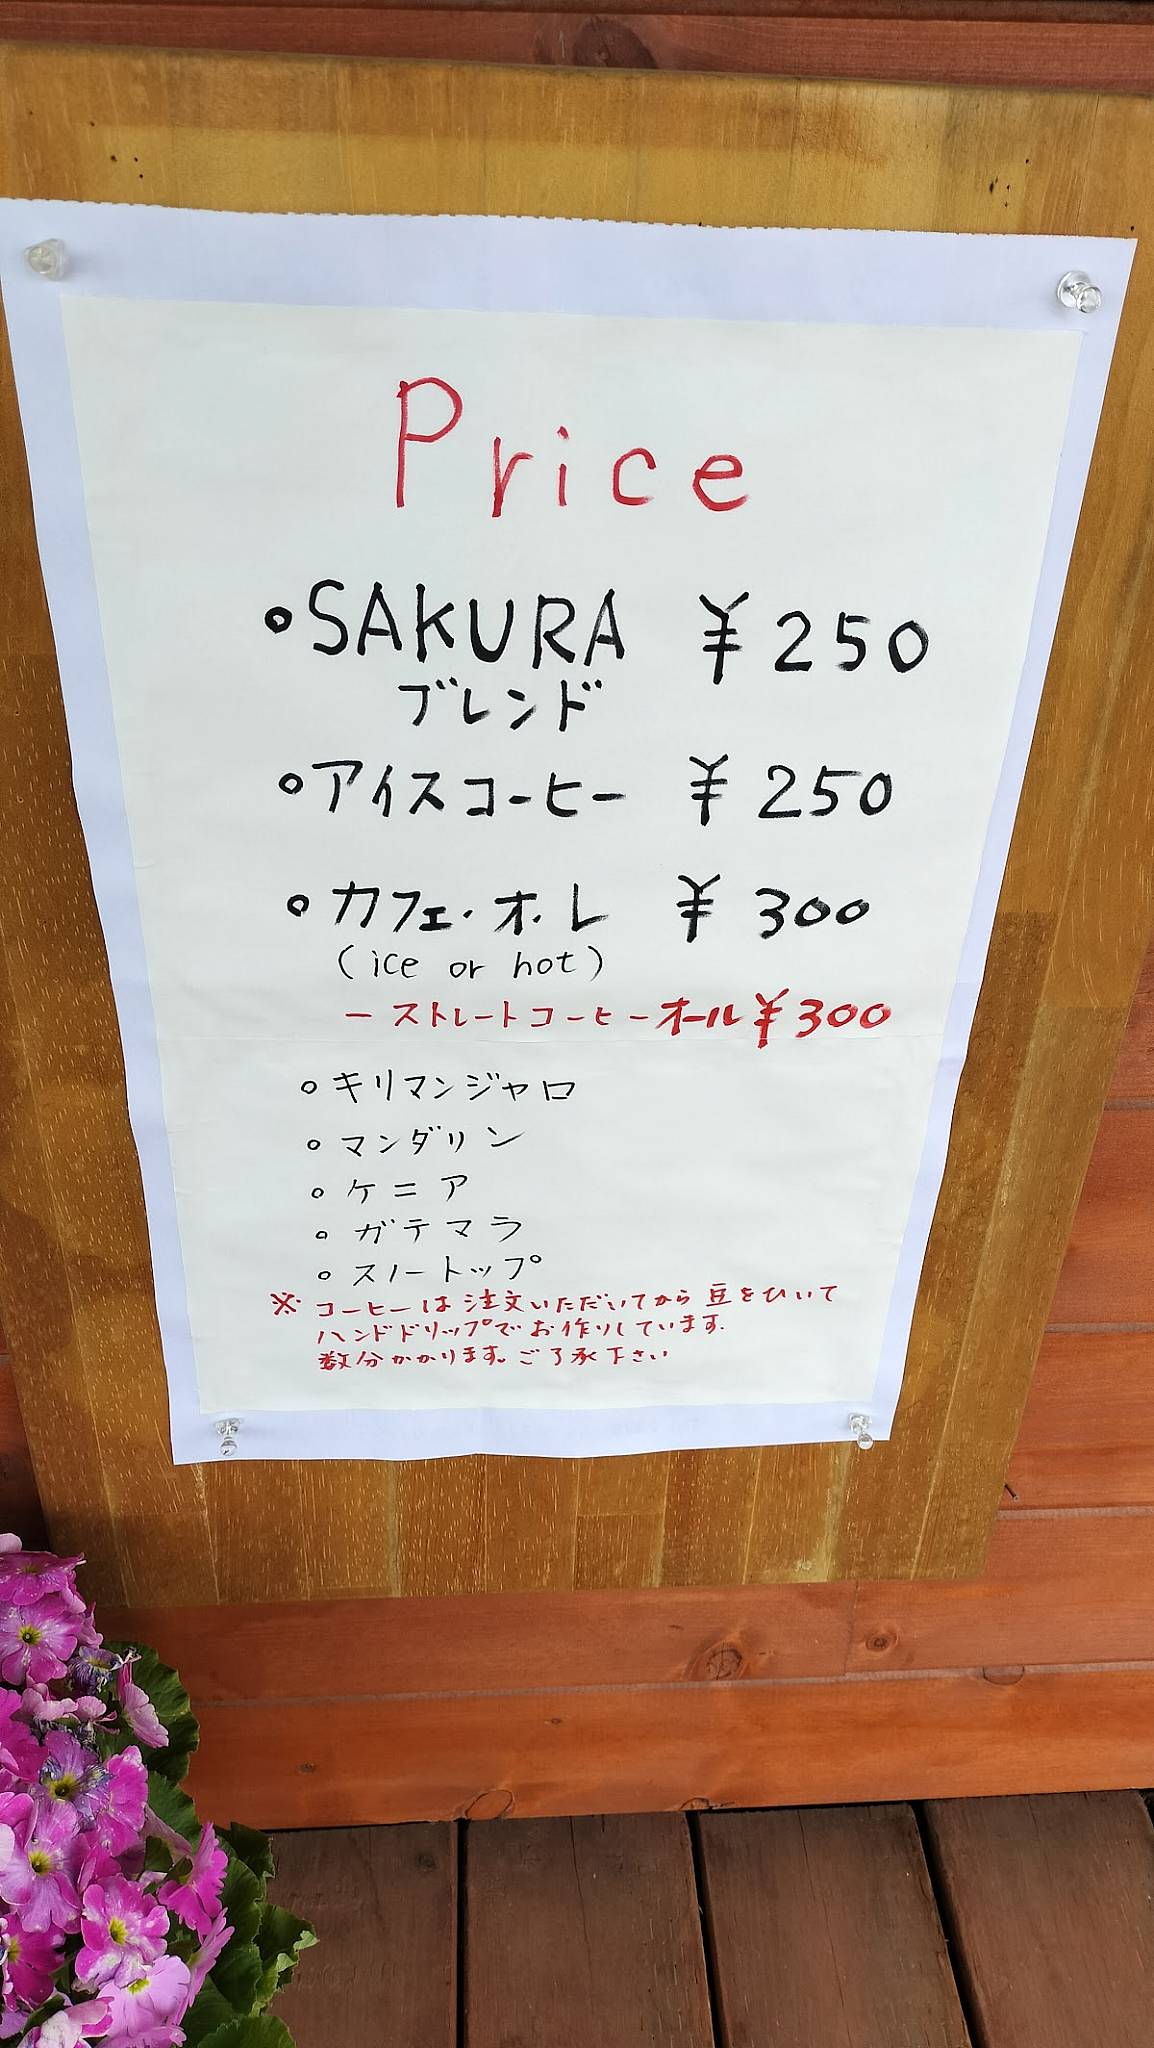 Price
○SAKURA ¥250
ブレンド
○アイスコーヒー ¥250
○カフェ・オ・レ ¥300
(ice or hot)
ーストレートコーヒーオール¥300
○キリマンジャロ
○マンダリン
○ケニア
○ガテマラ
○スノートップ
※コーヒーは注文いただいてから豆をひいて
ハンドドリップでお作りしています.
数分かかります。ご了承下さい